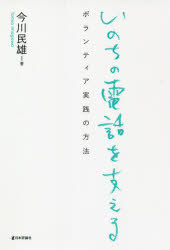 いのちの電話を支える
ボランティア実践の方法
今川民雄=著
Tamio Imagawa
日本評論社